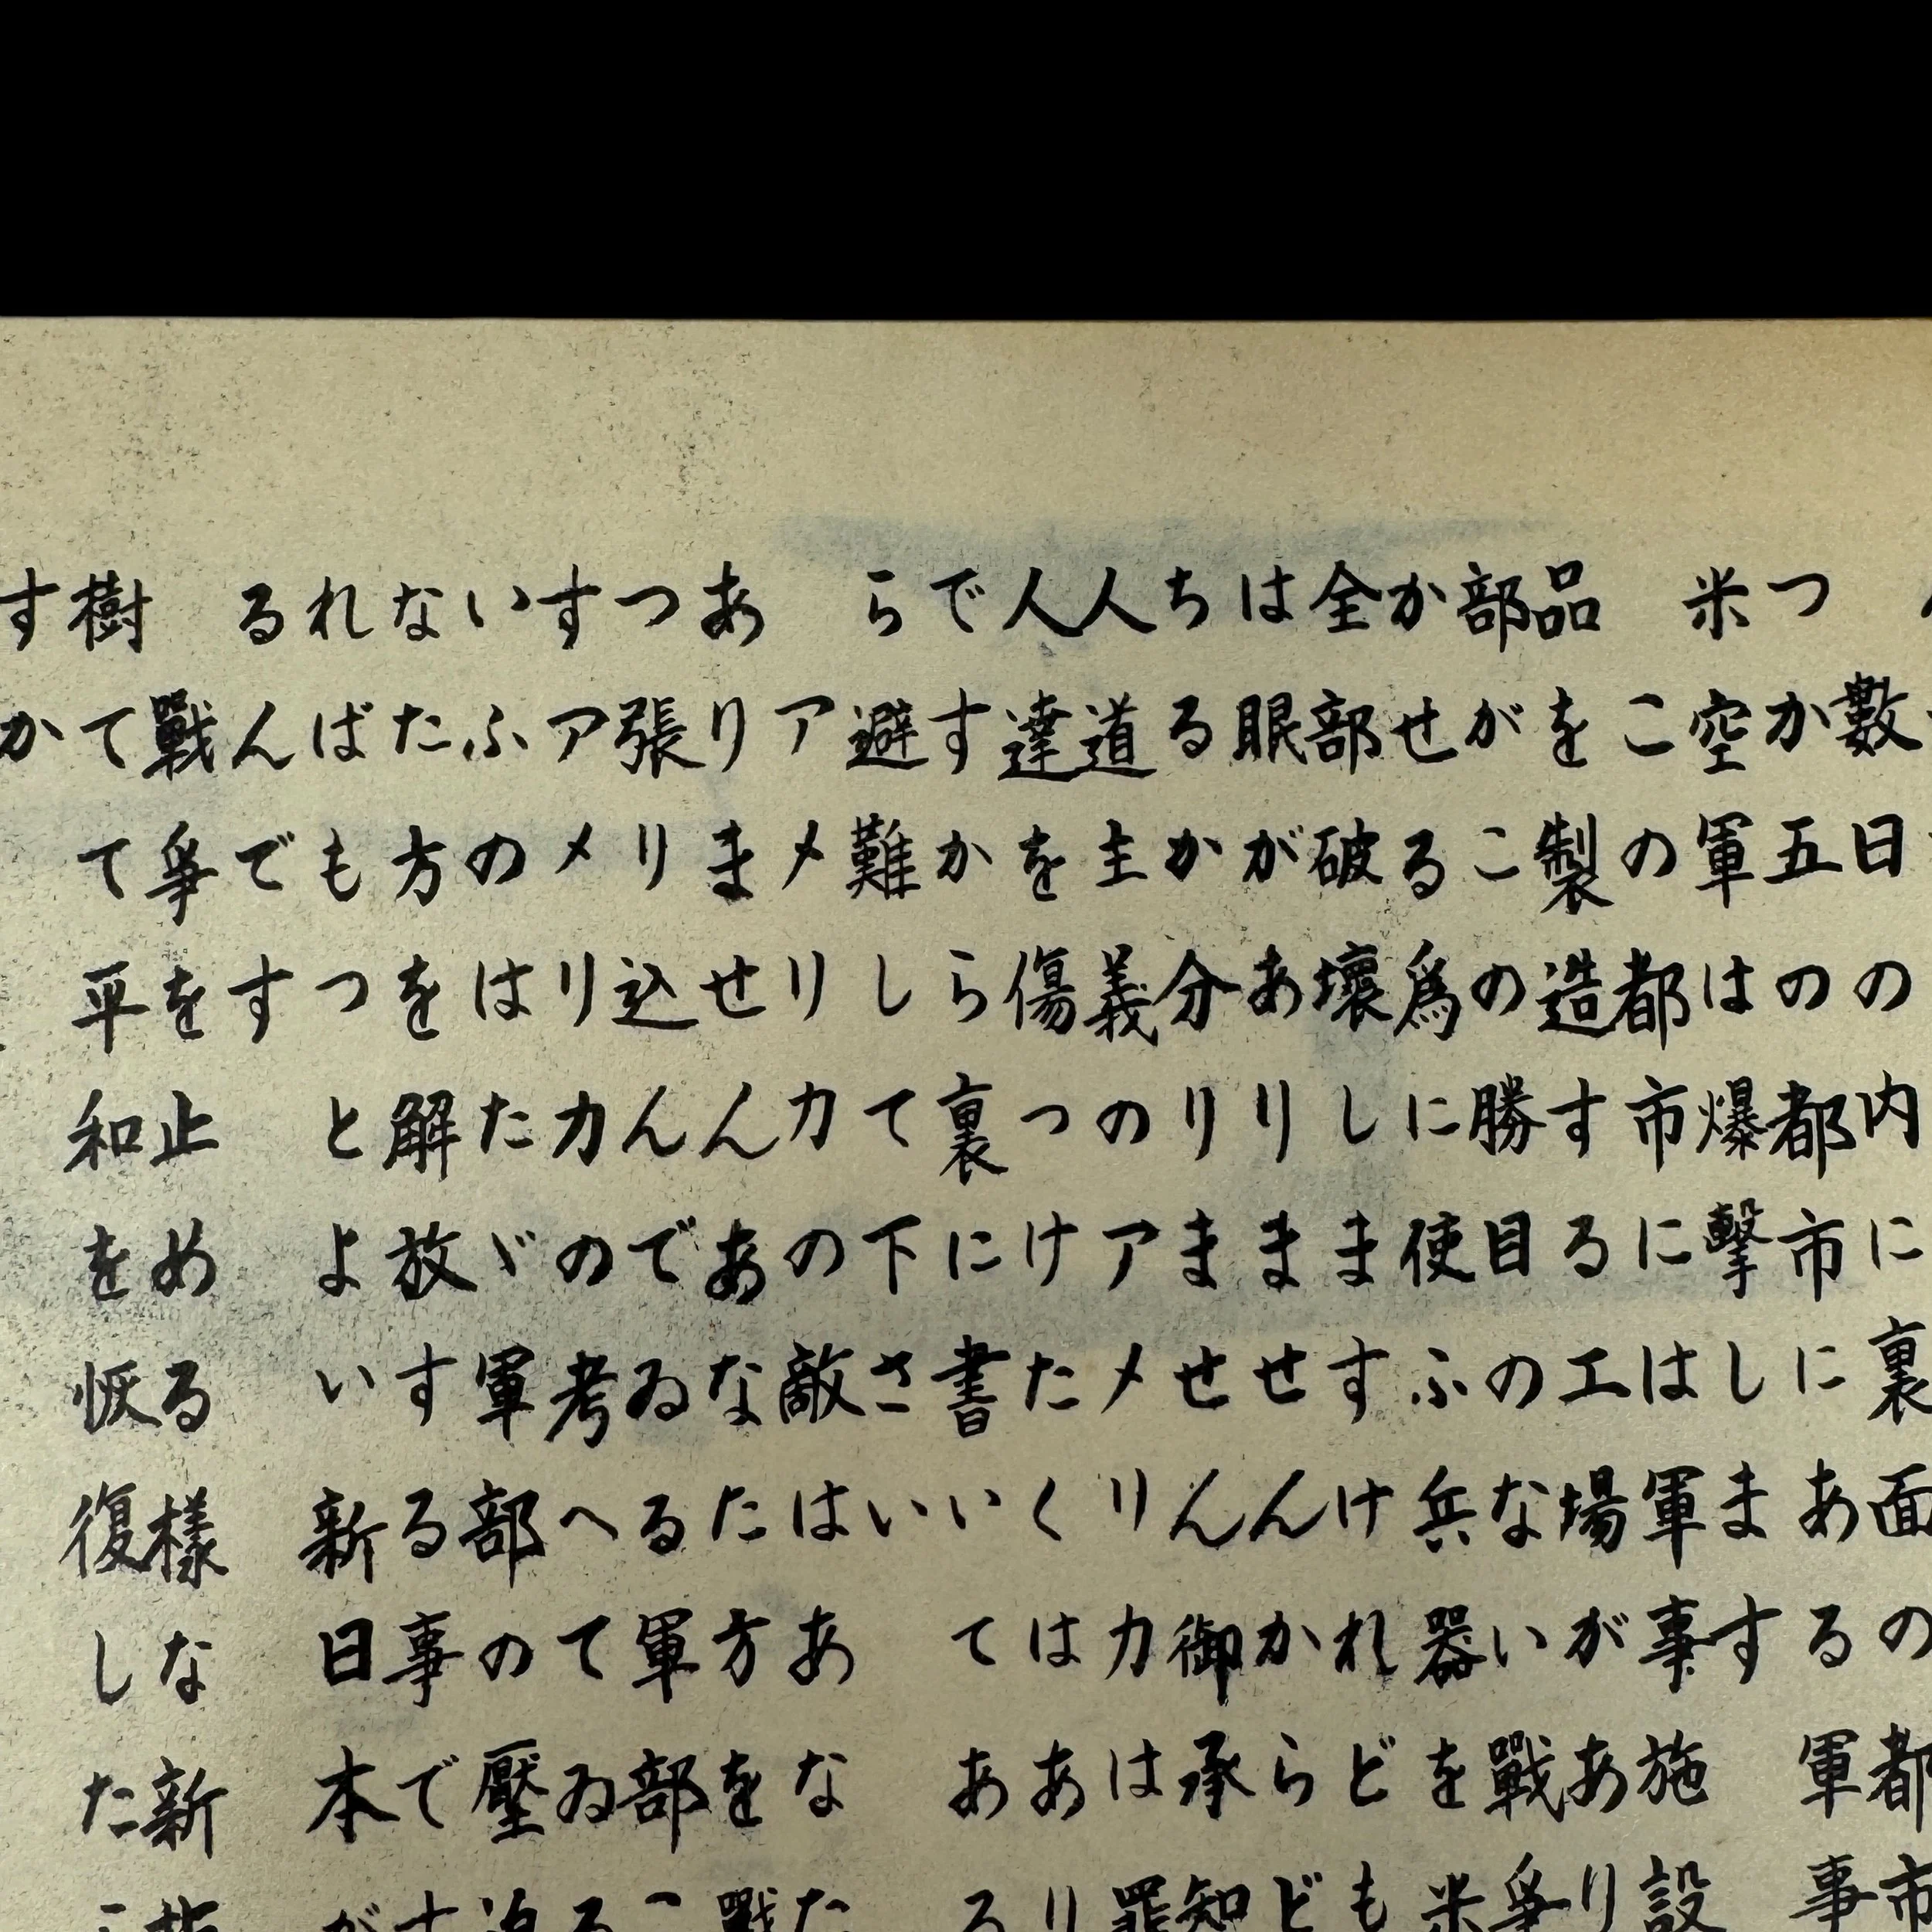 數日の内に裏面の都市
つか五の都市にある軍事
米空軍は爆擊します
この都市には軍事施設
品を製造する工場があり
部がこの勝目のない戰爭
かせる爲に使ふ兵器を米
全部破壞しますけれども
は眠がありませんからど
ちるか分りません御承知
人道主義のアメリカは罪
人達を傷つけたくはあり
ですから裏に書いてある
ら避難して下さい
アメリカの敵はあなた
ありませんあなた方を戰
つ張り込んでゐる軍部こ
すアメリカの考へてゐる
いふのはたゞ軍部の壓迫
なた方を解放する事です
ればもつとよい新日本が
るんです
戰爭を止める樣な新指
樹てて平和を恢復した
すか